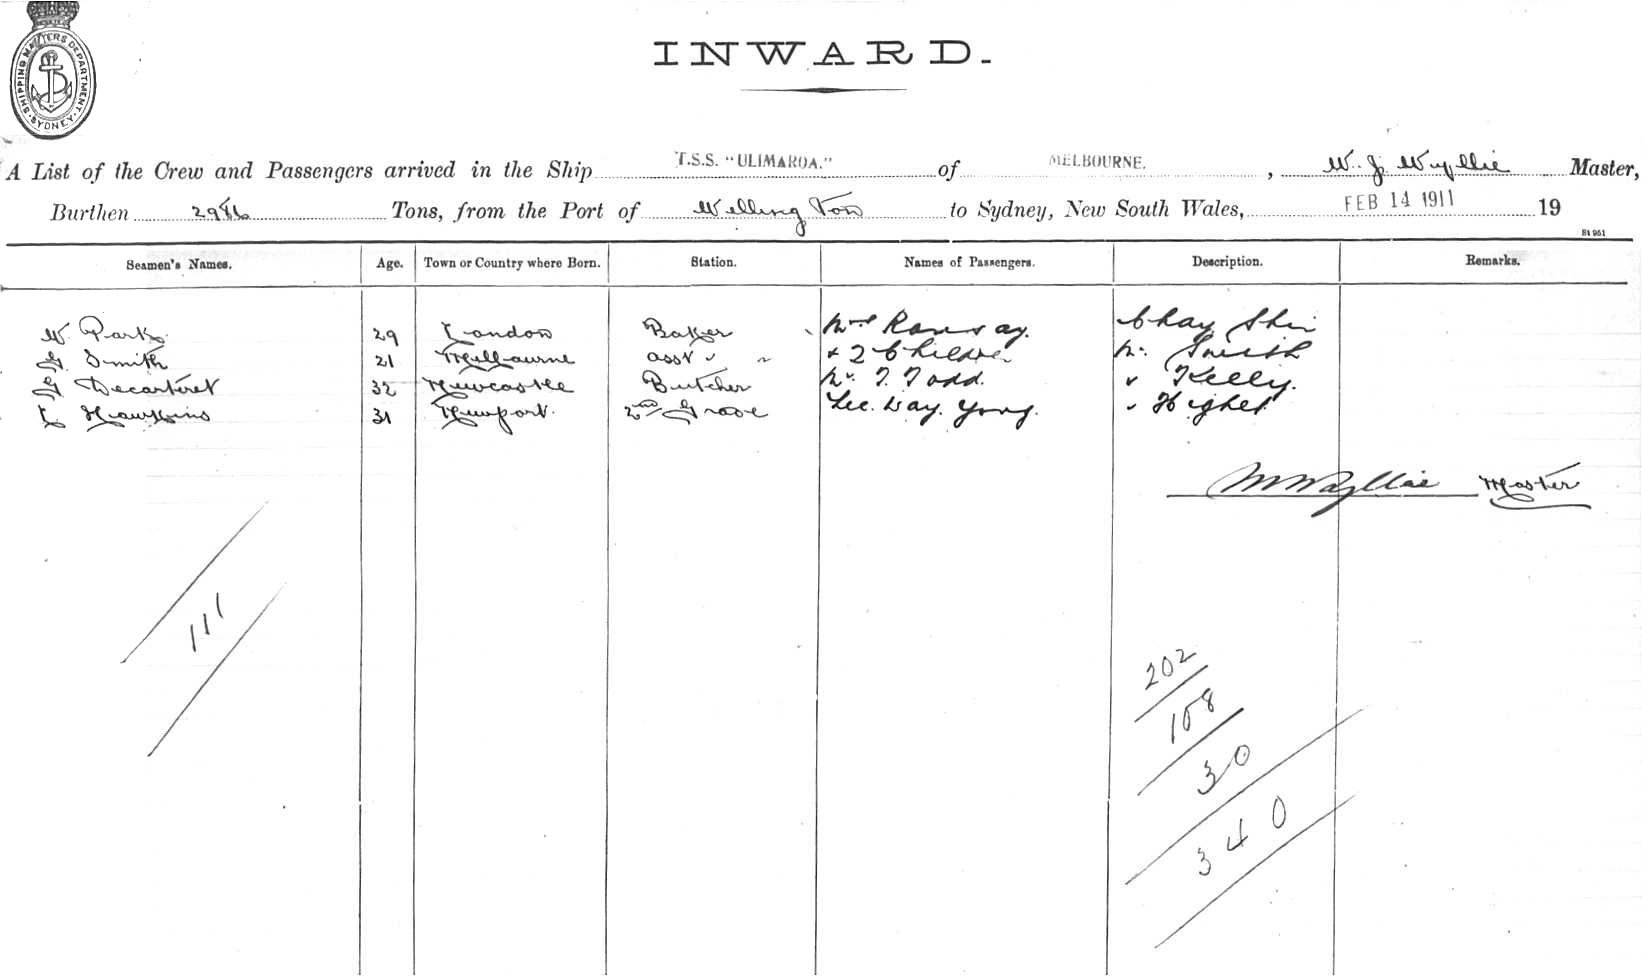 SHIPPING MASTERS DEPARTMENT. SYDNEY.
INWARD.
A List of the Crew and Passengers arrived in the Ship T.S.S. "ULIMAROA." of MELBOURNE. , W. J. Wyllie Master,
Burthen Tons, from the Port of Wellington to Sydney, New South Wales, FEB 14 1911 19
Seamen's Names. Age. Town or Country where Born. Station. Names of Passengers. Description. Remarks.
W Park 29 London Baker Mrs Ramsay. Chay Shin
G. Smith 21 Melbourne asst " " + 2 Children Mr. Smith
G Decarteret 32 Newcastle Butcher Mr. T. Todd. " Kelly.
Hawkins 31 Newport. 2nd Lee. Way. Yong. "
Wyllie Master
111
202
108
30
340